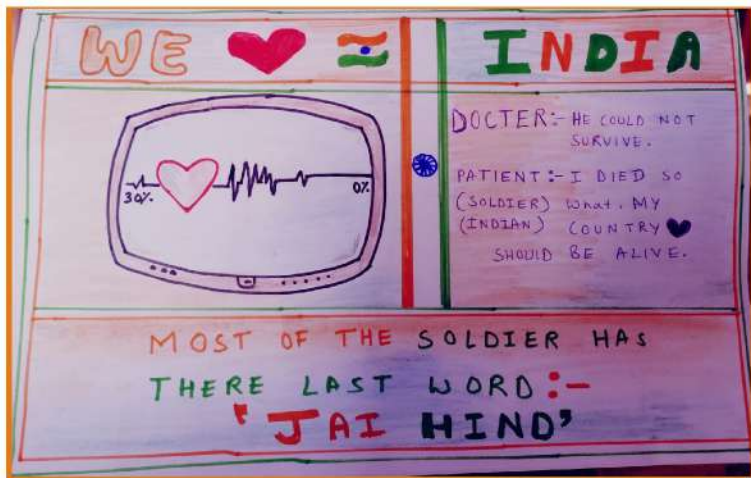 WE INDIA
30%. 0%.
DOCTER:- HE COULD NOT
SURVIVE.
PATIENT:- I DIED SO
(SOLDIER) What. MY
(INDIAN) COUNTRY
SHOULD BE ALIVE.
MOST OF THE SOLDIER HAS
THERE LAST WORD:-
"JAI HIND"